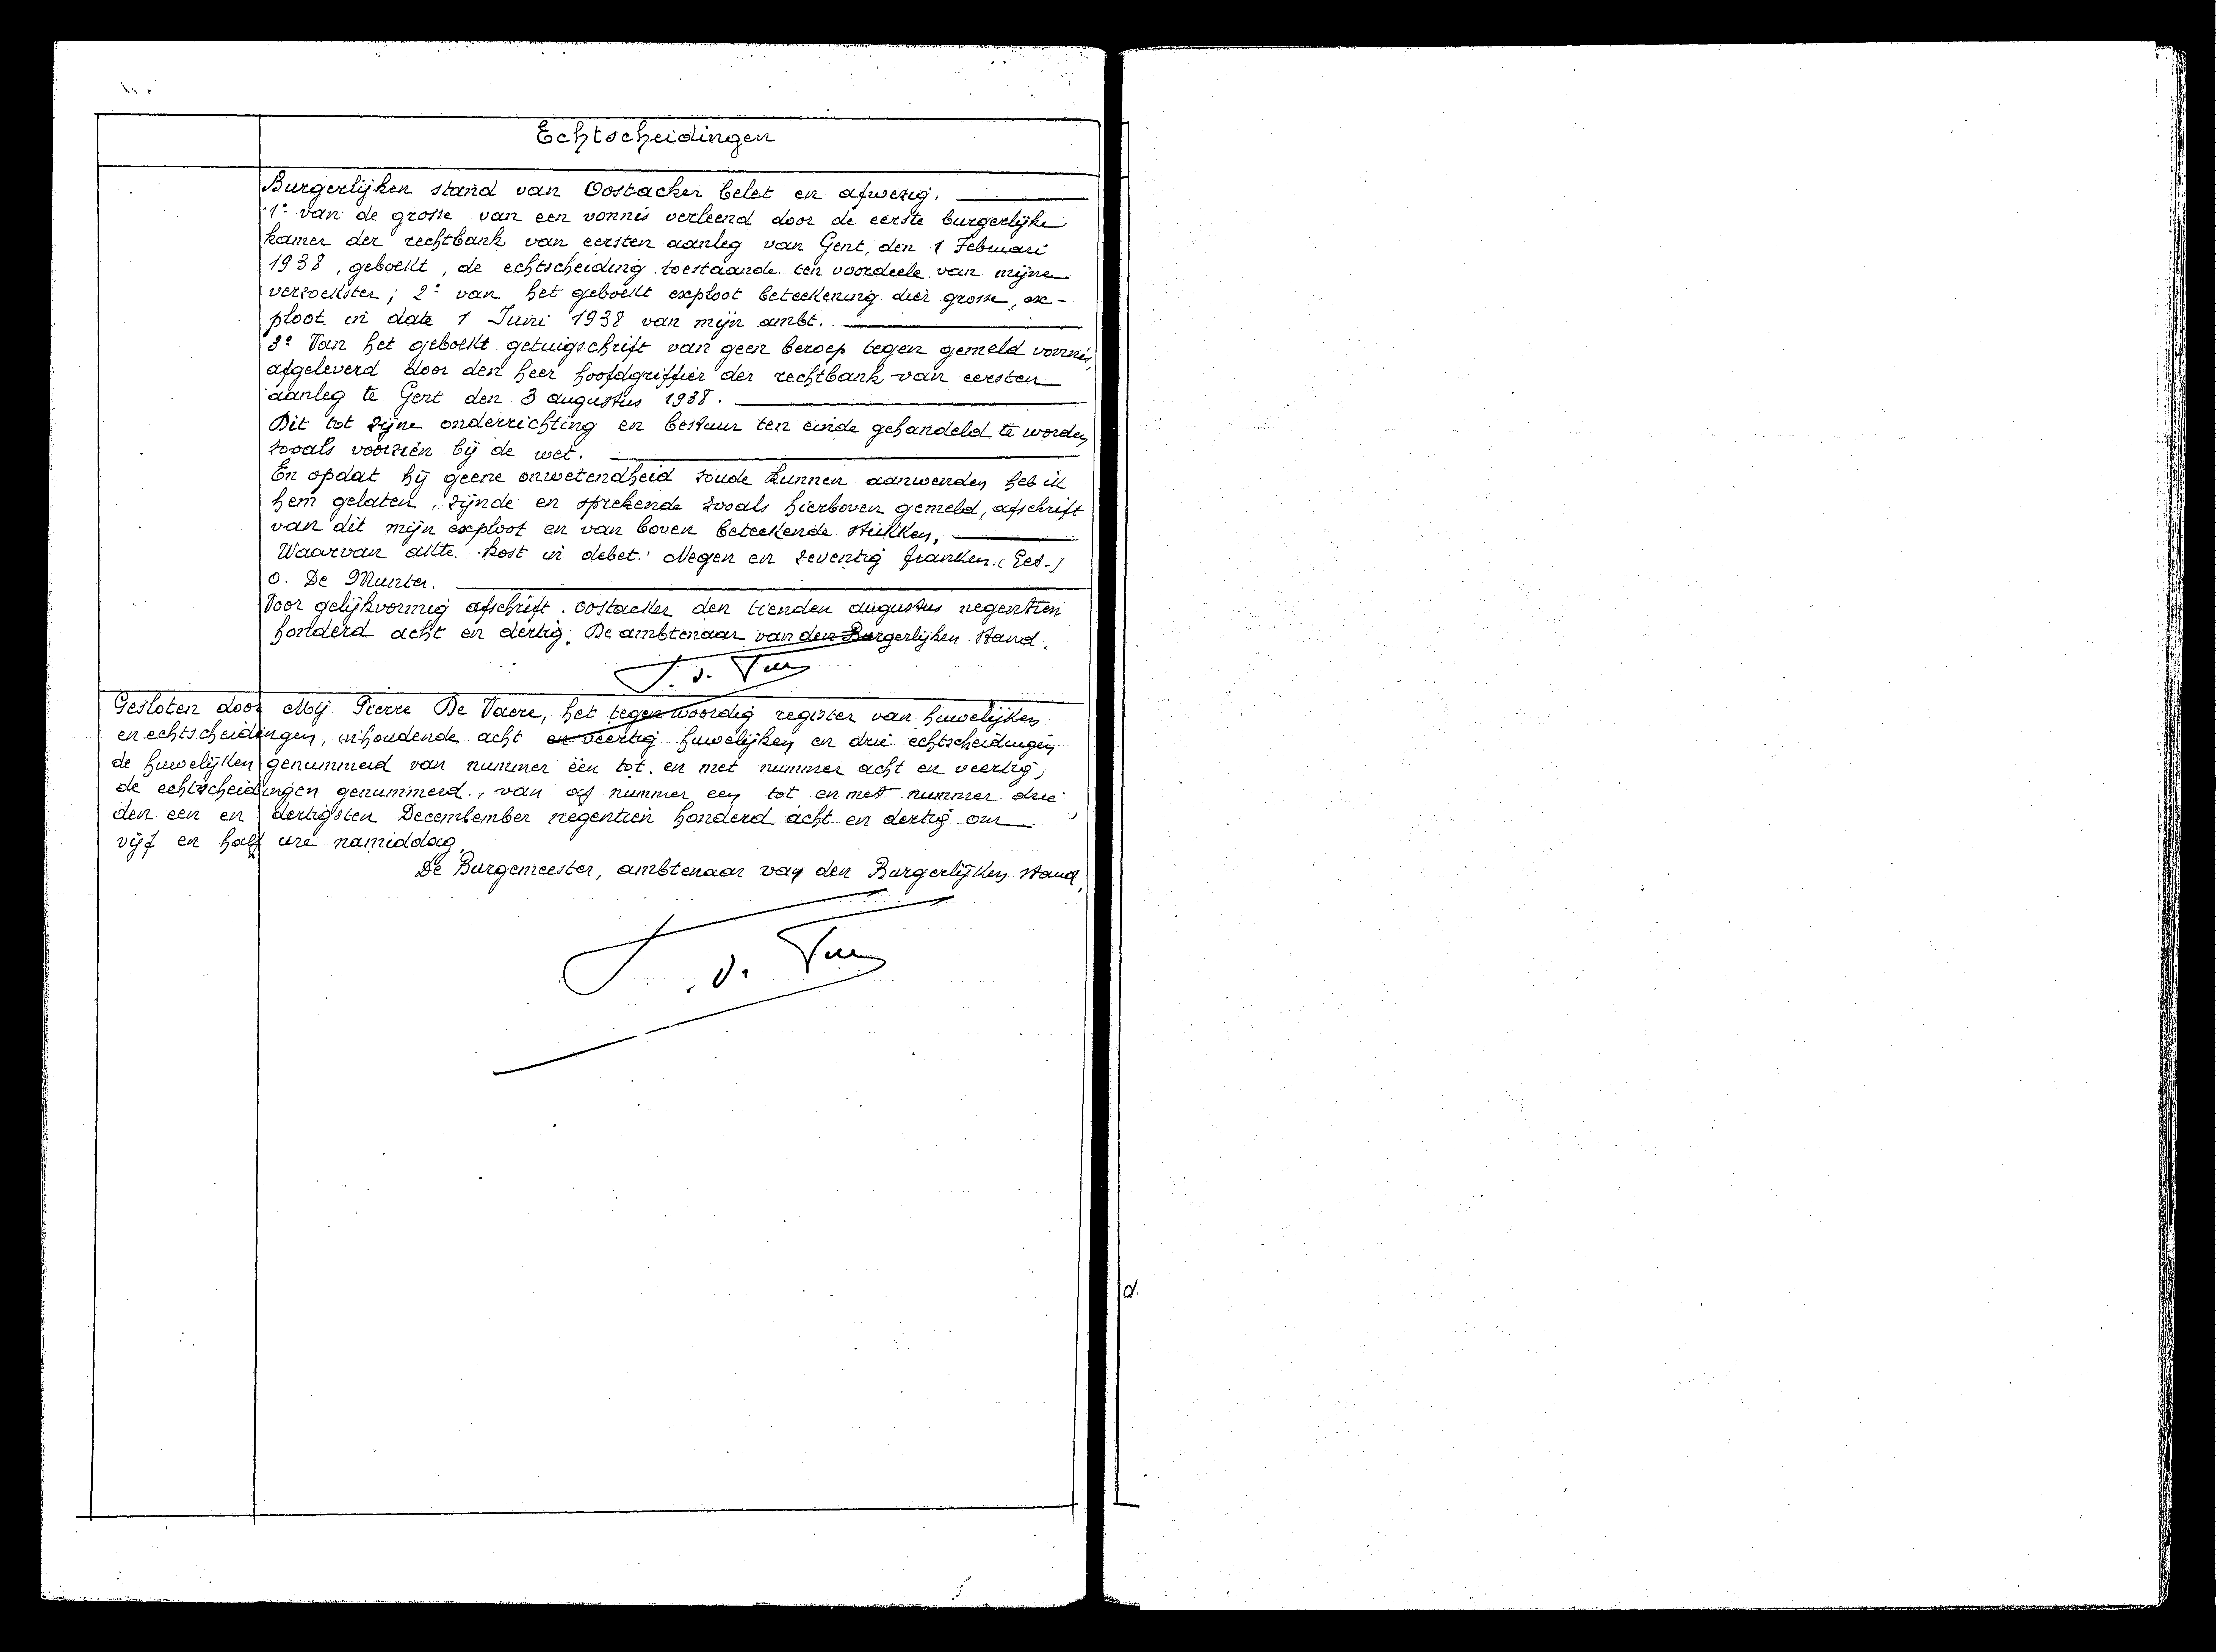 Echtscheidingen
Burgerlijken stand van Oostacker belet en afwezig.
1° van de grosse van een vonnis verleend door de eerste burgerlijke
kamer der rechtbank van eersten aanleg van Gent, den 1 Februari
1938, geboekt, de echtscheiding toestaande ten voordeele van mijne
verzoekster; 2° van het geboekt exploot beteekening dier grosse, ex-
ploot in date 1 Juni 1938 van mijn ambt.
3° Van het geboekt getuigschrift van geen beroep tegen gemeld vonnis,
afgeleverd door den heer hoofdgriffier der rechtbank van eersten
aanleg te Gent den 3 augustus 1938.
Dit tot zijne onderrichting en bestuur ten einde gehandeld te worden
zooals voorzien bij de wet.
En opdat hij geene onwetendheid zoude kunnen aanwenden heb ik
hem gelaten, zijnde en sprekende zooals hierboven gemeld, afschrift
van dit mijn exploot en van boven beteekende stukken.
Waarvan akte. Kost in debet: Negen en zeventig franken. (Get.)
O. De Munter.
Voor gelijkvormig afschrift. Oostacker den tienden augustus negentien
honderd acht en dertig. De ambtenaar van den Burgerlijken stand.
Gesloten door Mij Pierre De Vaere, het tegenwoordig register van huwelijken
en echtscheidingen, inhoudende acht en veertig huwelijken en drie echtscheidingen
de huwelijken genummerd van nummer één tot en met nummer acht en veertig;
de echtscheidingen genummerd, van af nummer een tot en met nummer drie,
den een en dertigsten Decembember negentien honderd acht en dertig om
vijf en half ure namiddag.
De Burgemeester, ambtenaar van den Burgerlijken stand,
d.